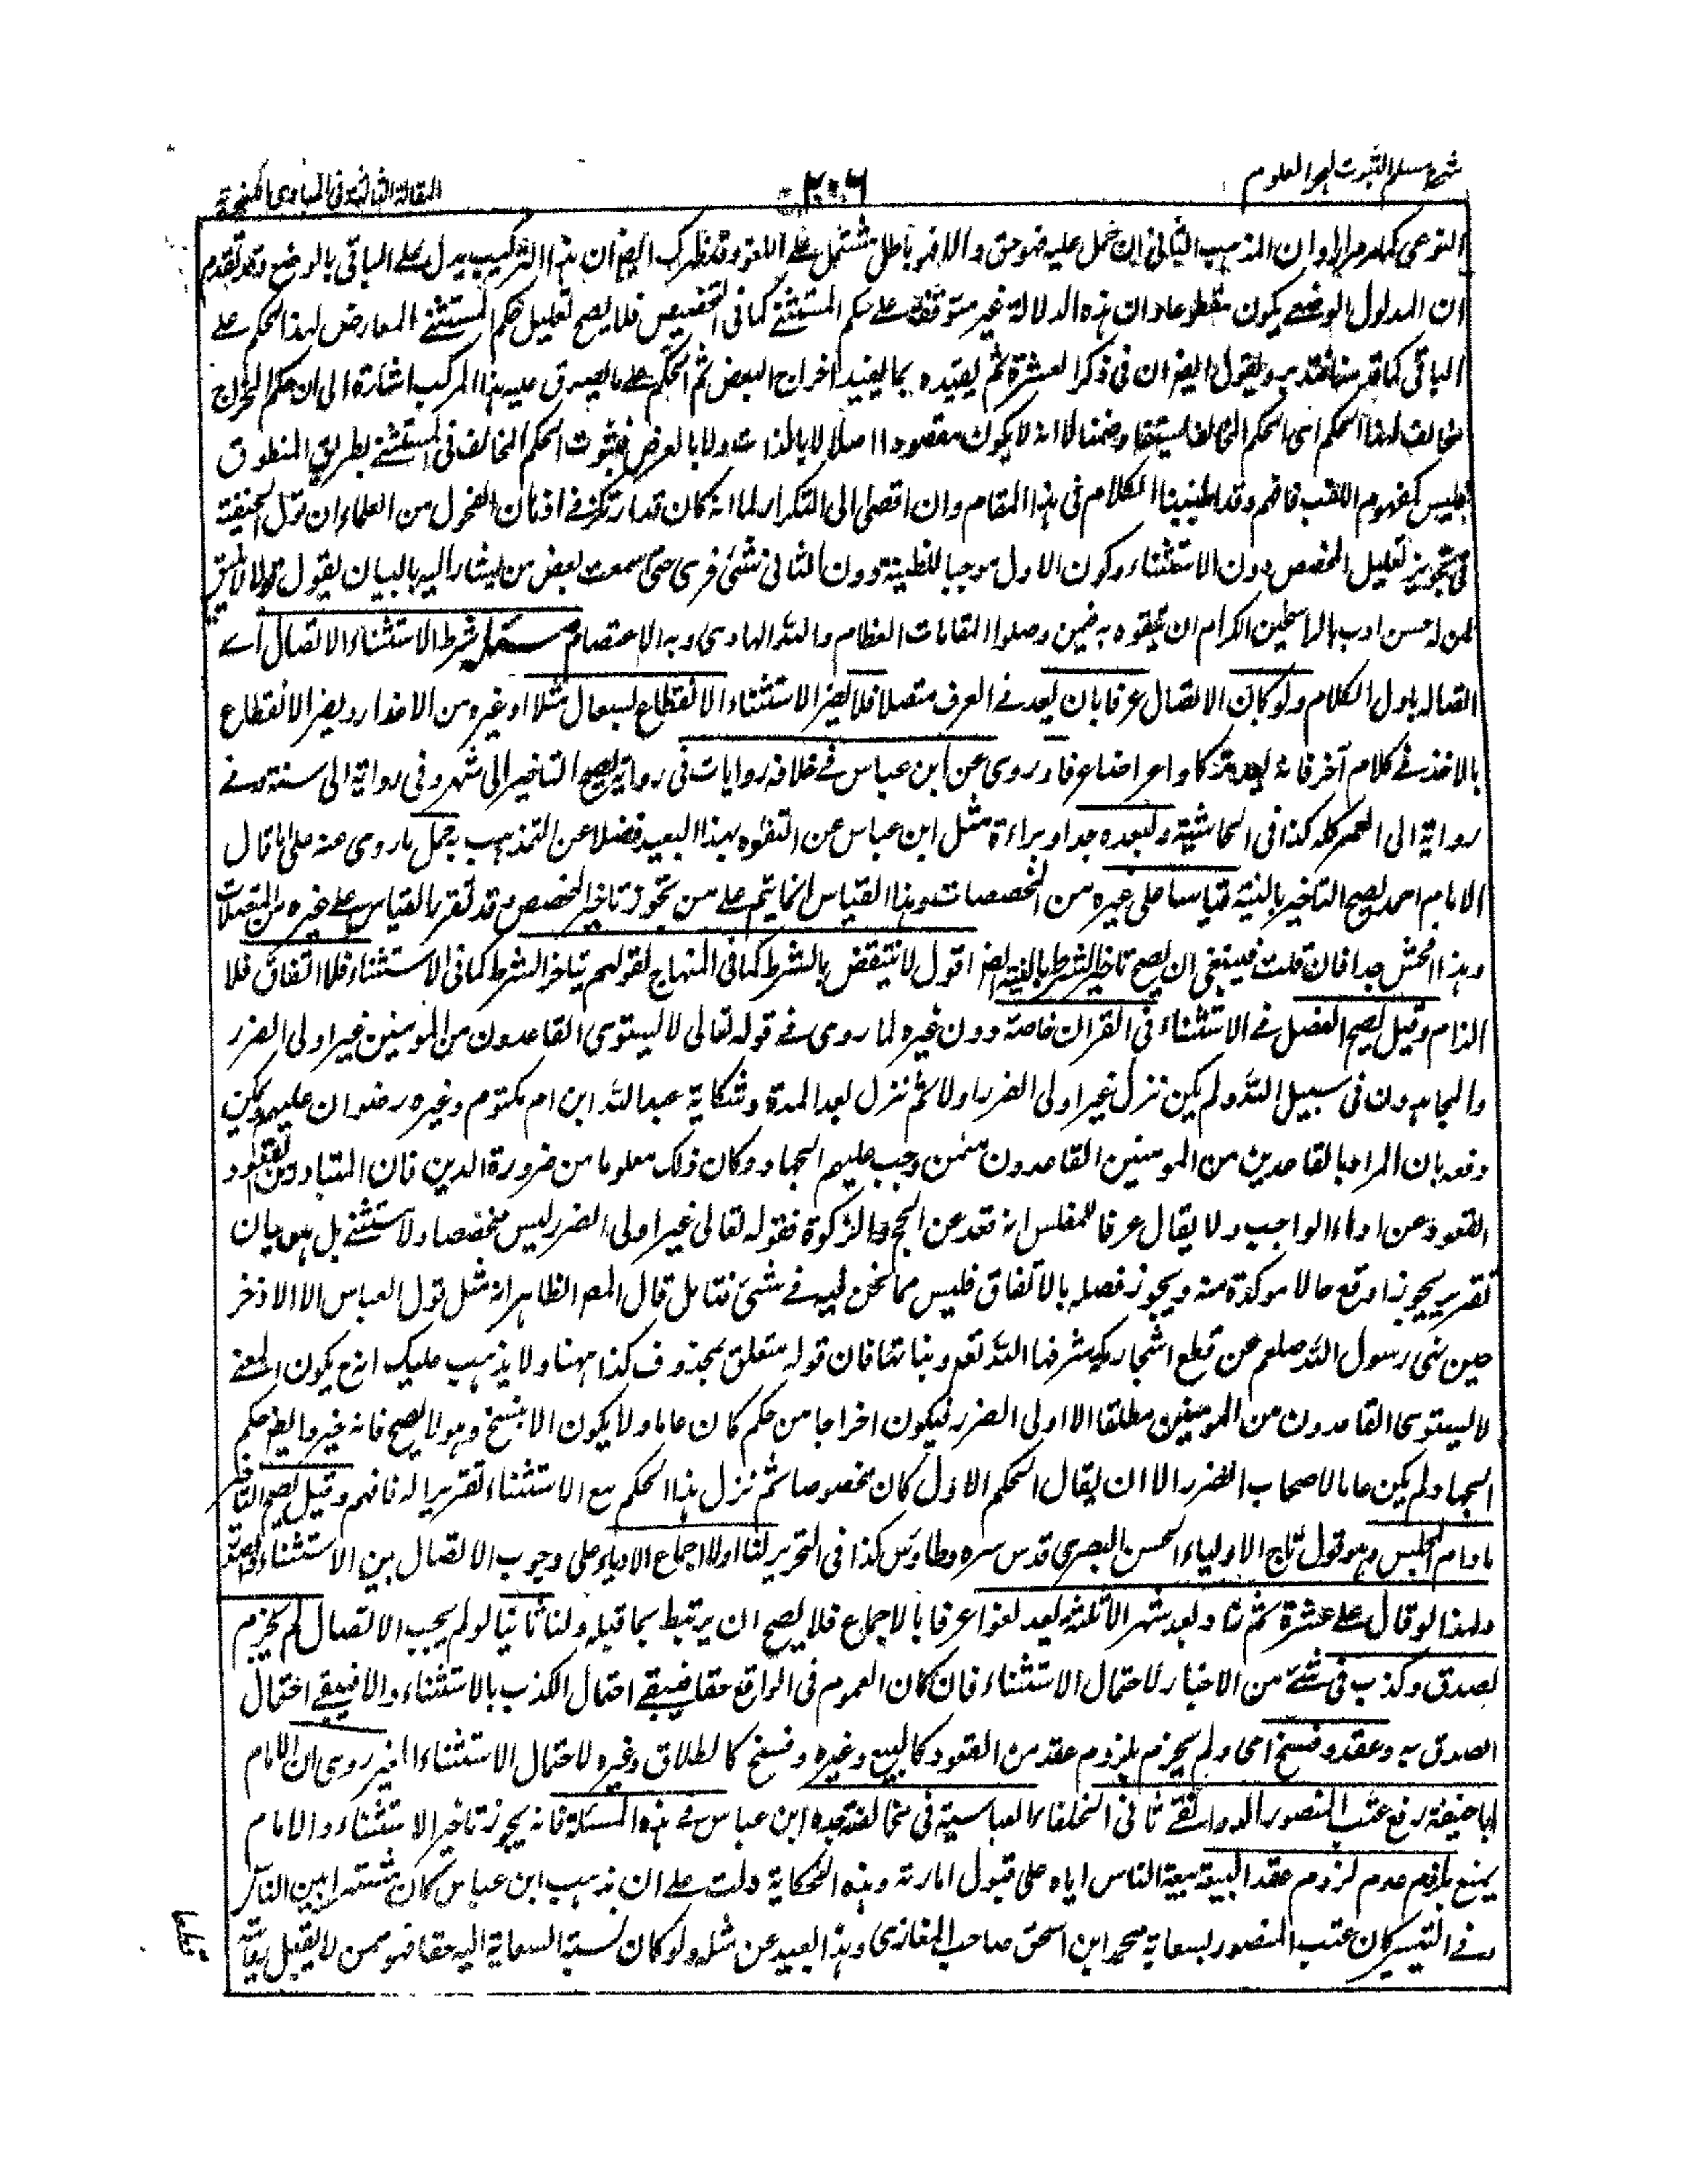 شرح مسلم الثبوت لبحر العلوم
٢٠٦
المقالة الثالثة فى المبادى اللغوية
النوعى كما مر مرارا وان المذهب الثانى ان حمل عليه فهو حق والا فهو باطل مشتمل على اللغو وقد ظهر لك ايضا ان هذا التركيب يدل على الباقى بالوضع وقد تقدم
ان المدلول الوضعى يكون مقطوعا وان هذه الدلالة غير متوقفة على حكم المستثنى كما فى التخصيص فلا يصح تعليل حكم المستثنى المعارض لهذا الحكم على
الباقى كما قررنا فتدبر ونقول ايضا ان فى ذكر العشرة ثم يقيده بما يفيد اخراج البعض ثم الحكم على ما يصدق عليه هذا المركب اشارة الى ان حكم المخرج
مخالف لهذا الحكم اى الحكم المخالف سيق وضمنا لا انه لا يكون مقصودا اصلا لا بالذات ولا بالعرض فثبوت الحكم المخالف فى المستثنى بطريق المنطوق
فليس كمفهوم اللقب فافهم وقد اطنبنا الكلام فى هذا المقام وان افضى الى التكرار لما انه كان قد ارتكز فى اذهان الفحول من العلماء ان قول الحنفية
فى تجويز تعليل المخصص دون الاستثناء وكون الاول موجبا للظنية دون الثانى شئ فرى حتى سمعت بعض من يشار اليه بالبيان يقول قولا لا يليق
لمن له حسن ادب بالراسخين الكرام ان يتفوه به فيمن وصلوا المقامات العظام والله الهادى وبه الاعتصام مسئلة شرط الاستثناء الاتصال اے
اتصاله باول الكلام ولو كان الاتصال عرفا بان يعد فى العرف متصلا فلا يضر الاستثناء الانقطاع لسعال مثلا او غيره من الاعذار ويضر الانقطاع
بالاخذ فى كلام آخر فانه يعد تركا واعراضا عرفا وروى عن ابن عباس فى خلافه روايات فى رواية يصح التاخير الى شهر وفى رواية الى سنة وفى
رواية الى العمر كله كذا فى الحاشية ولبعده جدا وبراءة مثل ابن عباس عن التفوه بهذا البعيد فضلا عن التمذهب به حمل ما روى عنه على ما قال
الامام احمد يصح التاخير بالنية قياسا على غيره من المخصصات وهذا القياس انما يتم على من يجوز تاخير المخصص وقد تقرر بالقياس على غيره من المتصلات
وهذا افحش جدا فان قلت فينبغى ان يصح تاخير الشرط بالنية ايضا اقول لا ننتقض بالشرط كما فى المنهاج لقولهم بتاخر الشرط كما فى الاستثناء فلا اتفاق فلا
الزام وقيل يصح الفصل فى الاستثناء فى القران خاصة دون غيره لما روى فى قوله تعالى لا يستوى القاعدون من المومنين غير اولى الضرر
والمجاهدون فى سبيل الله ولم يكن نزل غير اولى الضرر اولا ثم نزل بعد المدة وشكاية عبد الله ابن ام مكتوم وغيره رضوان عليهم ويمكن
دفعه بان المراد بالقاعدين من المومنين القاعدون ممن وجب عليهم الجهاد وكان ذلك معلوما من ضرورة الدين فان المتبادر من القعود
القعود عن اداء الواجب ولا يقال عرفا للمفلس انه قعد عن الحج والزكوة فقوله تعالى غير اولى الضرر ليس مخصصا ولا استثنى بل هو بيان
تقرير يجوز اذ وقع حالا موكدة منه ويجوز فصله بالاتفاق فليس مما نحن فيه فى شئ فتامل قال المصـ الظاهر انه مثل قول العباس الا الاذخر
حين نهى رسول الله صلعم عن قطع اشجار مكة شرفها الله تعـ ونباتها فان قوله متعلق بمحذوف كذا ههنا ولا يذهب عليك انه ح يكون المعنى
لا يستوى القاعدون من المومنين مطلقا الا اولى الضرر فيكون اخراجا من حكم كان عاما ولا يكون الا بنسخ وهو لا يصح فانه خبر وايضا حكم
الجهاد لم يكن عاما لاصحاب الضرر الا ان يقال الحكم الاول كان مخصوصا ثم نزل هذا الحكم مع الاستثناء تقريرا له فافهم وقيل يصح التاخير
ما دام المجلس وهو قول تاج الاولياء الحسن البصرى قدس سره وطاؤس كذا فى التحرير لنا اولا اجماع الادباء على وجوب الاتصال بين الاستثناء
ولهذا لو قال على عشرة ثم زاد بعد شهر الا ثلثة يعد لغوا عرفا بالاجماع فلا يصح ان يرتبط بما قبله ولنا ثانيا لو لم يجب الاتصال لم يجزم
بصدق وكذب فى شئ من الاخبار لاحتمال الاستثناء فان كان العموم فى الواقع حقا فيبقى احتمال الكذب بالاستثناء والا فيبقى احتمال
الصدق به وعقد وفسخ اى ولم يجزم بلزوم عقد من العقود كالبيع وغيره وفسخ كالطلاق وغيره لاحتمال الاستثناء المغير روى ان الامام
ابا حنيفة رفع عتب المنصور الدوانقى ثانى الخلفاء العباسية فى مخالفته جده ابن عباس فى هذه المسئلة فانه يجوز تاخير الاستثناء والامام
يمنع بلزوم عدم لزوم عقد البيعة بيعة الناس اياه على قبول امارته وهذه الحكاية دلت على ان مذهب ابن عباس كان مشتهرا بين الناس
وفى التيسير كان عتب المنصور بسعاية محمد ابن اسحق صاحب المغازى وهذا بعيد عن مثله ولو كان نسبة السعاية اليه حقا فهو ممن لا يقبل